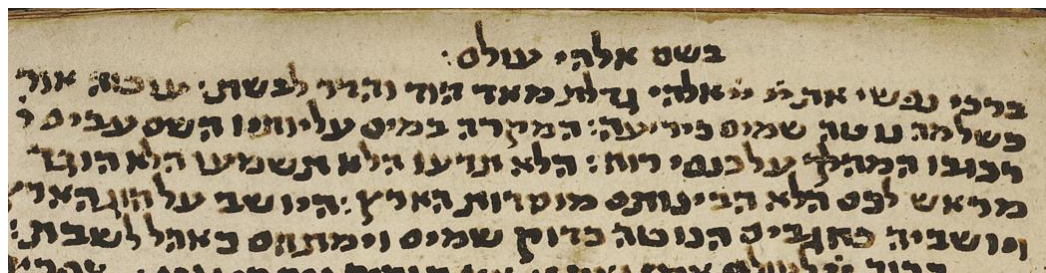 בשם אלהי עולם :
ברכי נפשי את יי יי אלהי גדלת מאד הוד והדר לבשת : עוטה אור
כשלמה נוטה שמים כיריעה : המקרה במים עליותיו השם עבים
רכובו המהלך על כנפי רוח : הלא תדעו הלא תשמעו הלא הוגד
מראש לכם הלא הבינותם מוסדות הארץ : היושב על חוג הארץ
ויושביה כחגבים הנוטה כדוק שמים וימתחם כאהל לשבת :